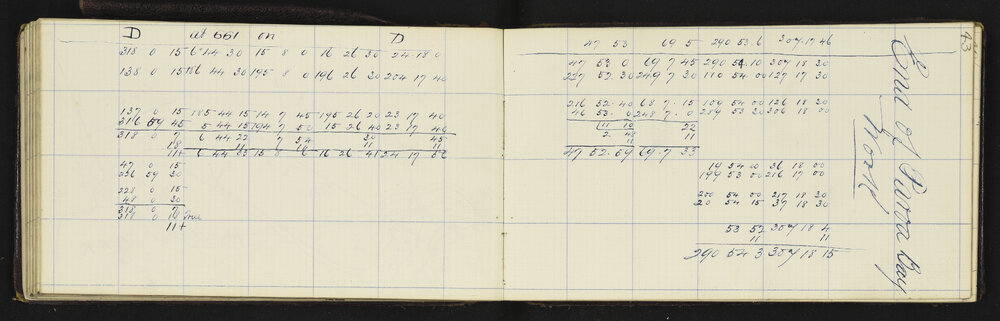 D at 661 on D
318 0 15 6 44 30 15 8 0 16 26 30 24 18 0
138 0 15 186 44 30 195 8 0 196 26 30 204 17 40
137 0 15 185 44 15 14 7 45 195 26 20 23 17 40
316 59 45 5 44 15 194 7 50 15 26 40 23 17 40
318 0 7 6 44 22 7 54 30 45
18 11 18 11 11
11+ 6 44 33 15 8 6 16 26 41 24 17 56
47 0 15
236 59 30
228 0 15
48 0 30
318 0 7
317 0 18 true
11+
43
47 53 69 5 290 53 6 307 17 46
47 53 0 69 7 45 290 54 10 307 18 30
227 52 30 249 7 30 110 54 00 127 17 30
216 52.40 68 7.15 109 54 00 126 18 30
46 53.0 248 7.0 289 53 30 306 18 00
11 10 22
2.48 11
47 52.59 69.7 33
19 54 00 36 18 00
199 53 00 216 17 00
200 54 00 217 18 30
20 54 15 37 18 30
53 52 307 18 4
11 11
290 54 3 307 18 15
End of Purroa Bay
Mook